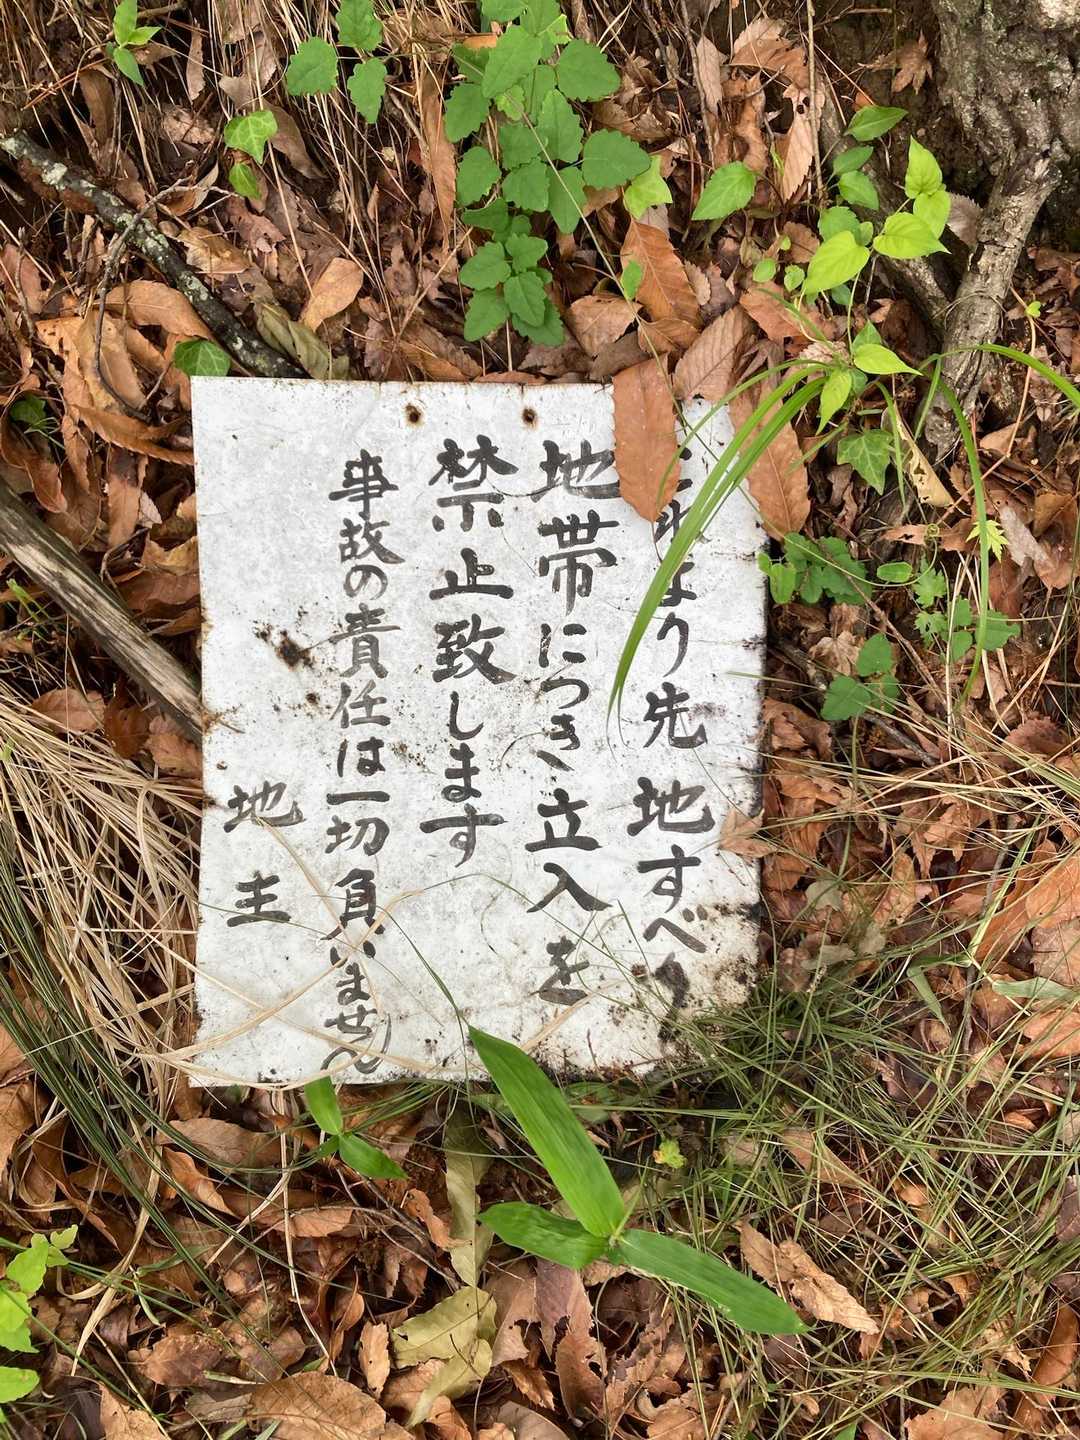 これより先 地すべり
地帯につき立入を
禁止致します
事故の責任は一切負いません
地主